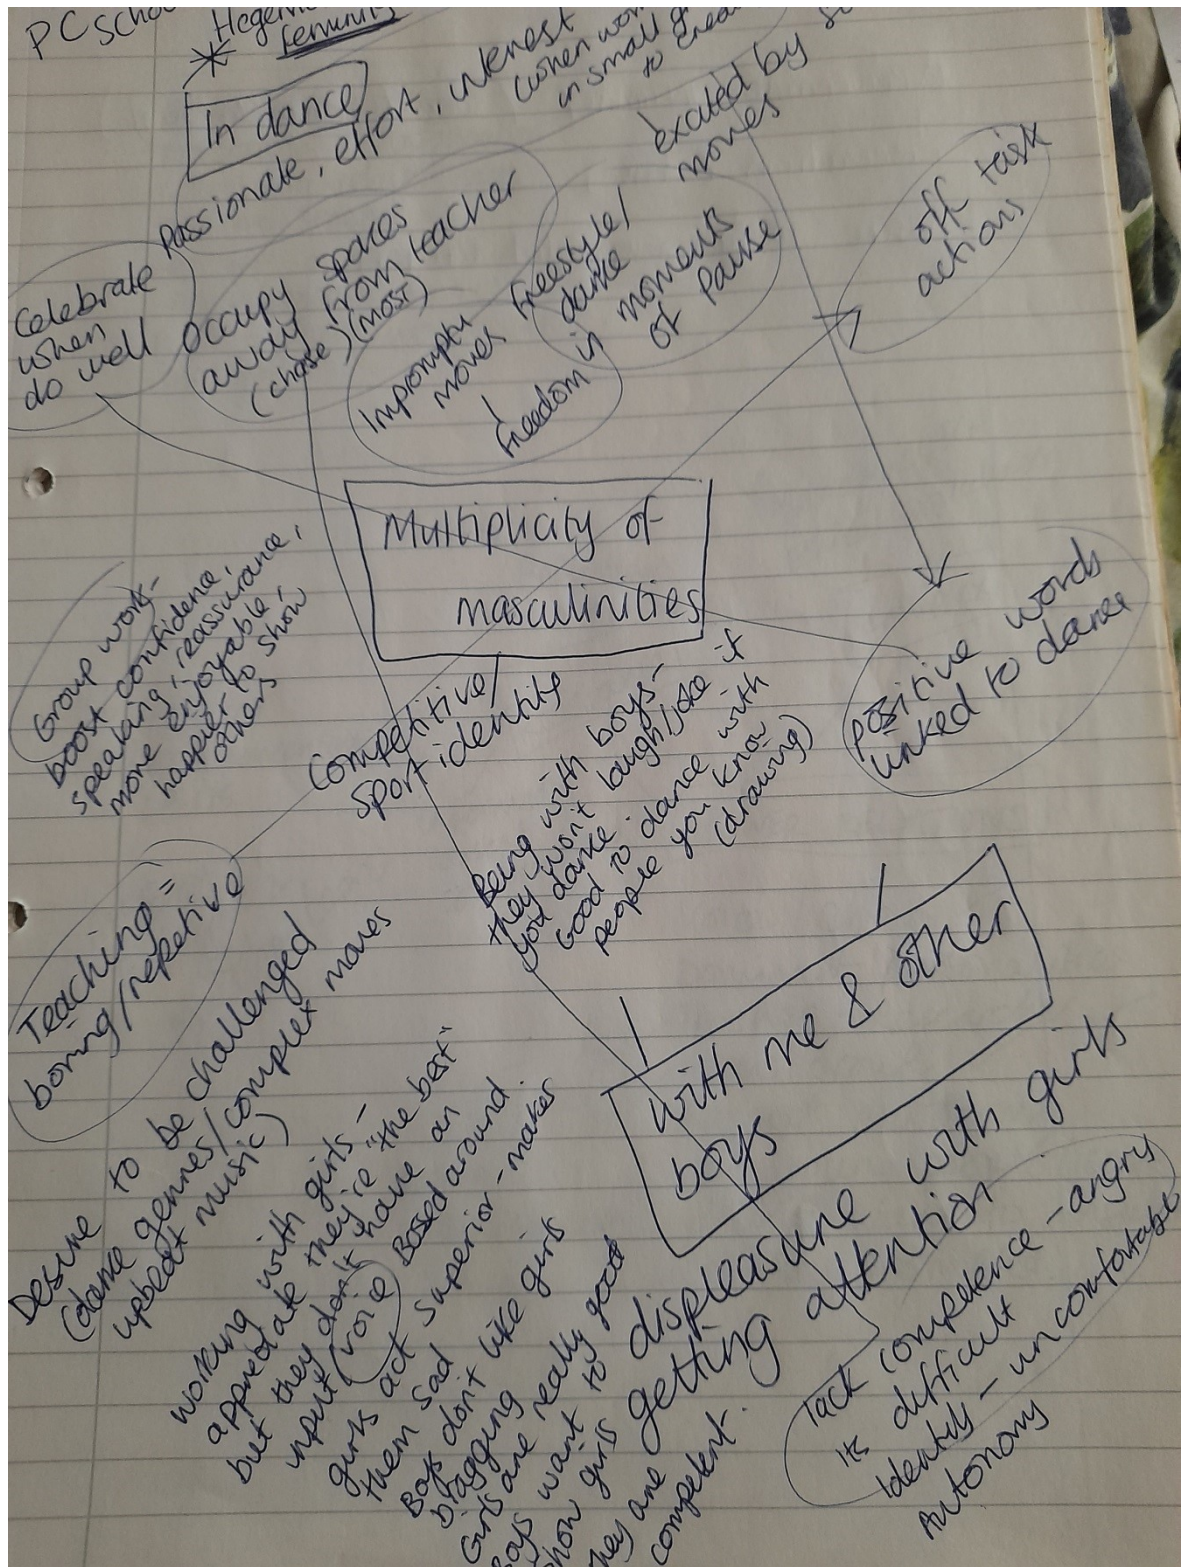 PC School
* Hegemonic
femininity
In dance
Passionate, effort, interest
(when work
in small
to create
excited by
moves
off task
actions
Celebrate
when
do well
occupy spaces
away from teacher
(chose) (most)
Impromptu
moves
freedom
freestyle/
dance
in moments
of pause
Multiplicity of
masculinities
Group work -
boost confidence,
speaking, reassurance,
more enjoyable,
happier to show
others
Competitive/
sport identity
Being with boys -
they won't laugh/joke if
you dance.
Good to dance with
people you know
(drawing)
positive words
linked to dance
Teaching =
boring/repetitive
Desire to be challenged
(dance genres/complex moves
upbeat music)
with me & other
boys
working with girls -
appreciate they're "the best"
but they don't have an
input (voice) Bossed around
girls act superior - makes
them sad
Boys don't like girls
bragging
Girls are really good
Boys want to
show girls
they are
competent.
displeasure with girls
getting attention
lack competence - angry
its difficult
Identity - uncomfortable
Autonomy